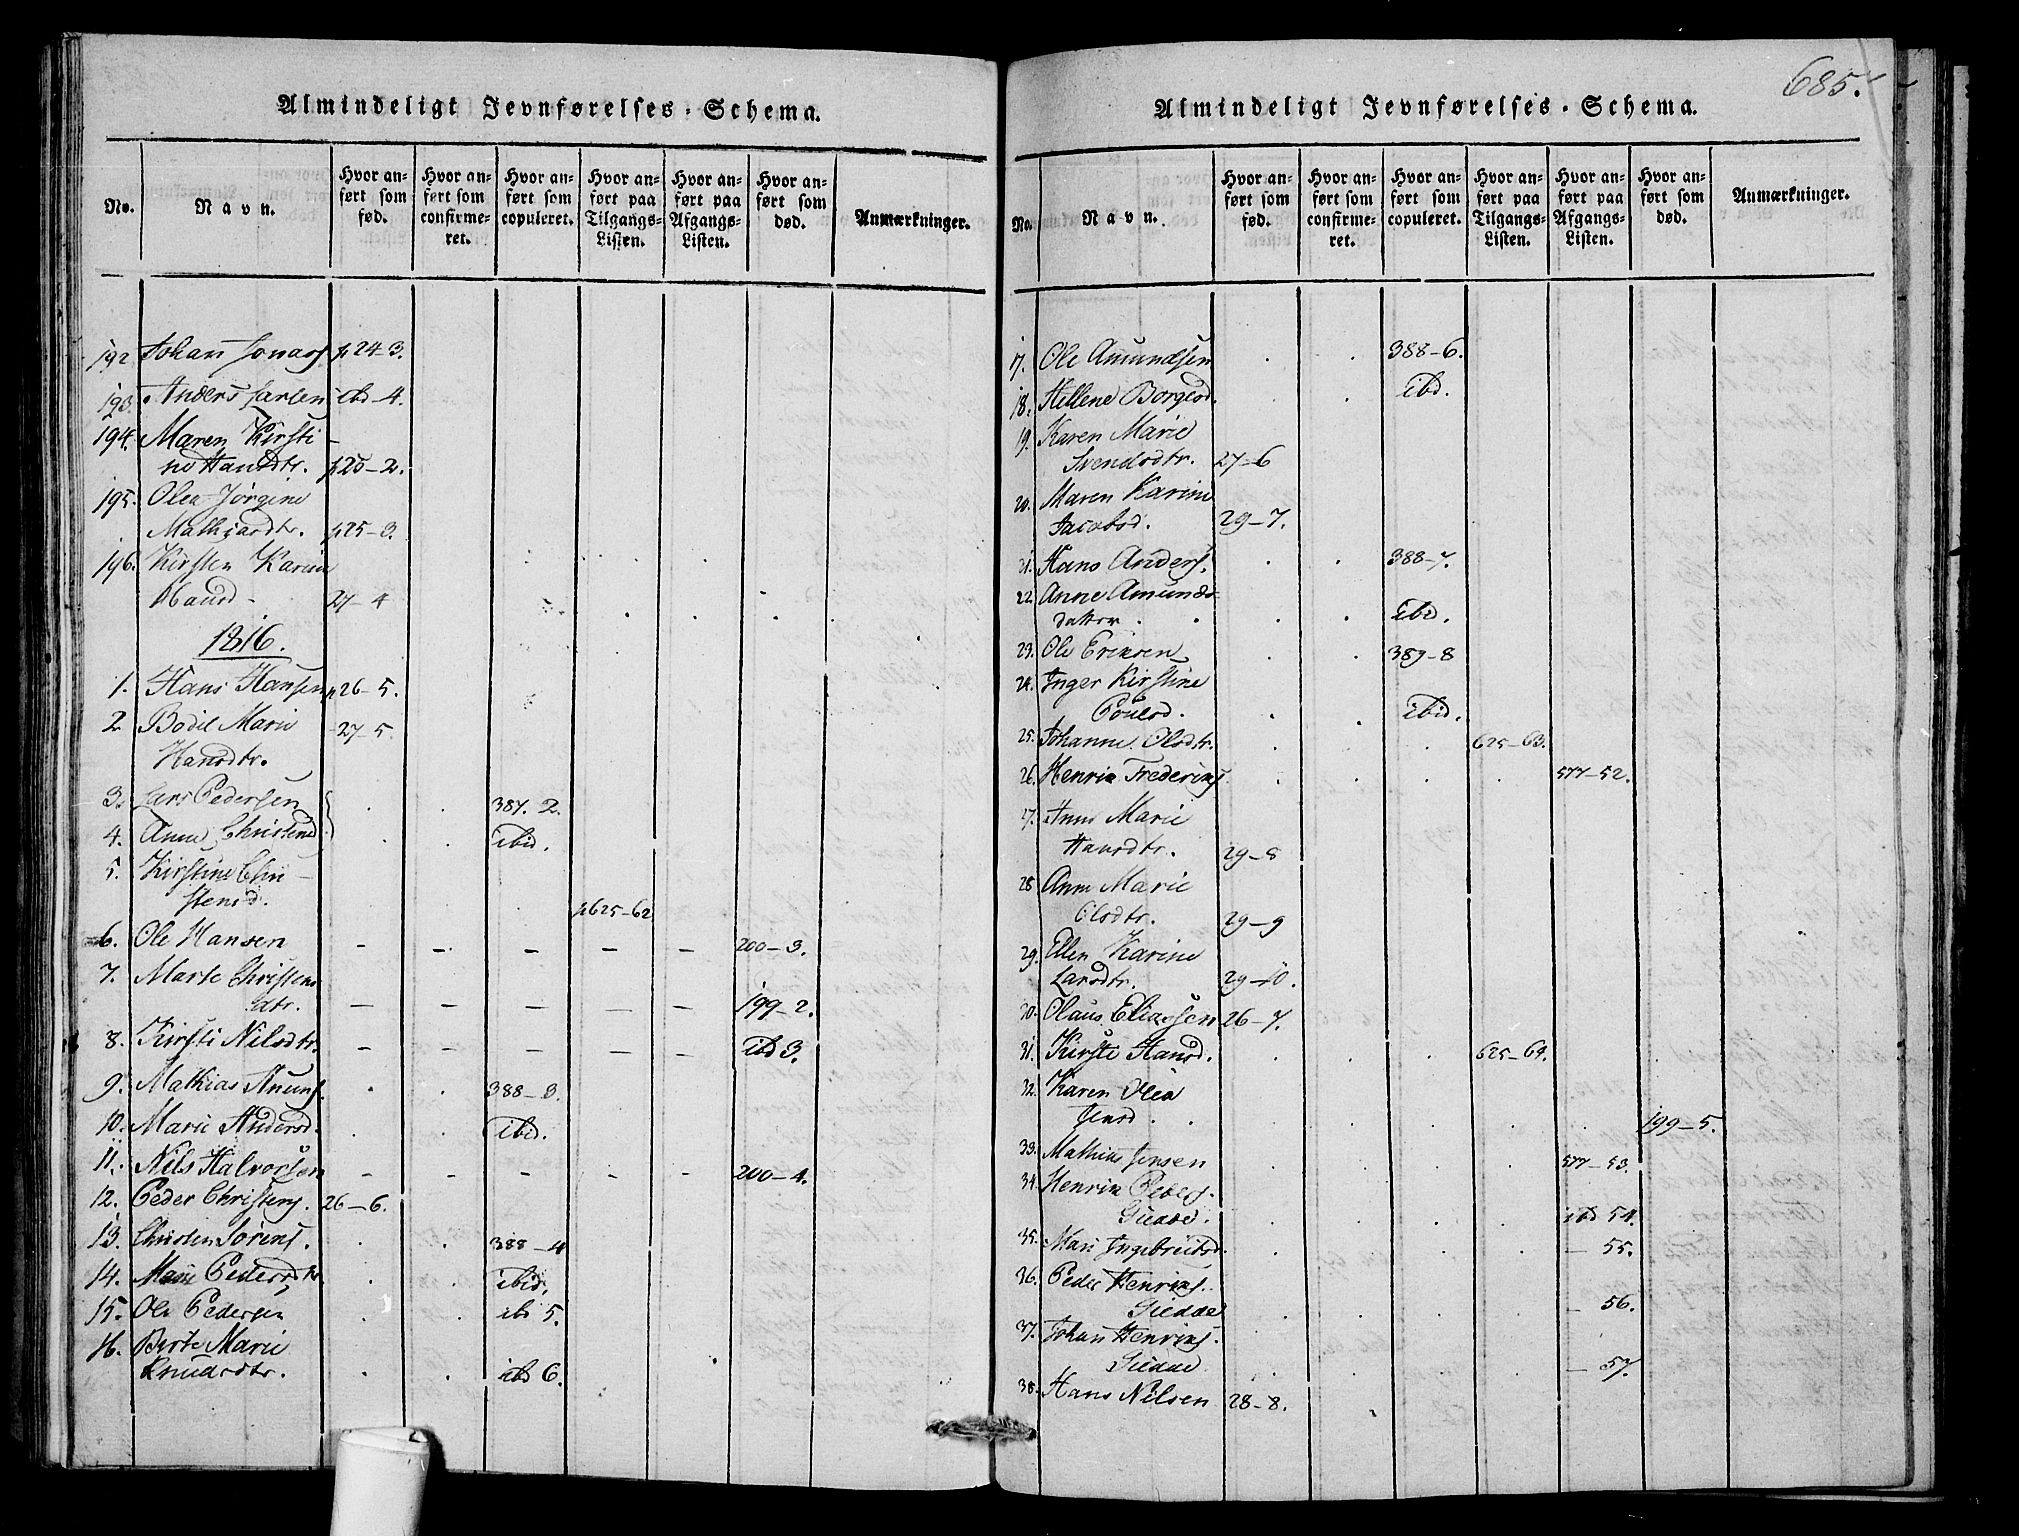 Almindeligt Jevnførelses-Schema.
No.
Navn.
Hvor an-
ført som
fød.
Hvor an-
ført som
confirme-
ret.
Hvor an-
ført som
copuleret.
Hvor an-
ført paa
Tilgangs-
Listen.
Hvor an-
ført paa
Afgangs-
Listen.
Hvor an-
ført som
død.
Anmærkninger.
192 Johan Jonas p 24-3.
193. Anders Larsen ibd-4.
194. Maren Kirsti-
ne Hansdtr. p 25-2.
195. Olea Jørgine
Mathisdtr. p 25-3.
196. Kirsten Karine
Hansd- 27-4
1816.
1. Hans Hansen p 26-5.
2 Bodil Marie -27-5.
Hansdtr.
3. Lars Pedersen 387. 2.
4. Anne Christensd ibid.
5. Kirstine Chri-
stensd. p 625-62
6. Ole Hansen - - - - - 200-3.
7. Marte Christens
dtr. - - - - - 199-2.
8. Kirsti Nilsdtr. - - - - - ibd 3.
9. Mathias Knuns. 388-3.
10. Marie Andersd. ibid.
11. Nils Halvorsen - - - - - 200-4.
12. Peder Christens. 26-6.
13. Christen Sørens. 388-4
14. Marie Pedersdtr ibid.
15. Ole Pedersen ibd 5.
16. Berte Marie
Knudsdtr. ibd 6.
685.
Almindeligt Jevnførelses-Schema.
No.
Navn.
Hvor an-
ført som
fød.
Hvor an-
ført som
confirme-
ret.
Hvor an-
ført som
copuleret.
Hvor an-
ført paa
Tilgangs-
Listen.
Hvor an-
ført paa
Afgangs-
Listen.
Hvor an-
ført som
død.
Anmærkninger.
17. Ole Amundsen 388-6.
18. Hellene Borgesd. ibd.
19. Karen Marie
Svendsdtr. 27-6
20. Maren Karine
Jacobsd. 29-7.
21. Hans Anders. 388-7.
22. Anne Amunds-
datter. ibid.
23. Ole Eriksen 389-8
24. Inger Kirstine
Poulsd. ibid.
25. Johanne Olsdtr. 625-63.
26. Henrik Frederiks 577-52.
27. Anne Marie
Hansdtr. 29-8
28 Anne Marie
Olsdtr. 29-9
29. Ellen Karine
Larsdtr. 29-10.
30. Olaus Eliassen 26-7.
31. Kirsti Hansd. 625-64.
32. Karen Olea
Jensd. 199-5.
33. Mathias Jensen 577-53.
34. Henrik Peders.
Giedde. ibd 54.
35. Mari Ingebreitsd. - 55.
36. Peder Henriks.
Giedde - 56.
37. Johan Henriks.
Giedde - 57.
38. Hans Nilsen 28-8.